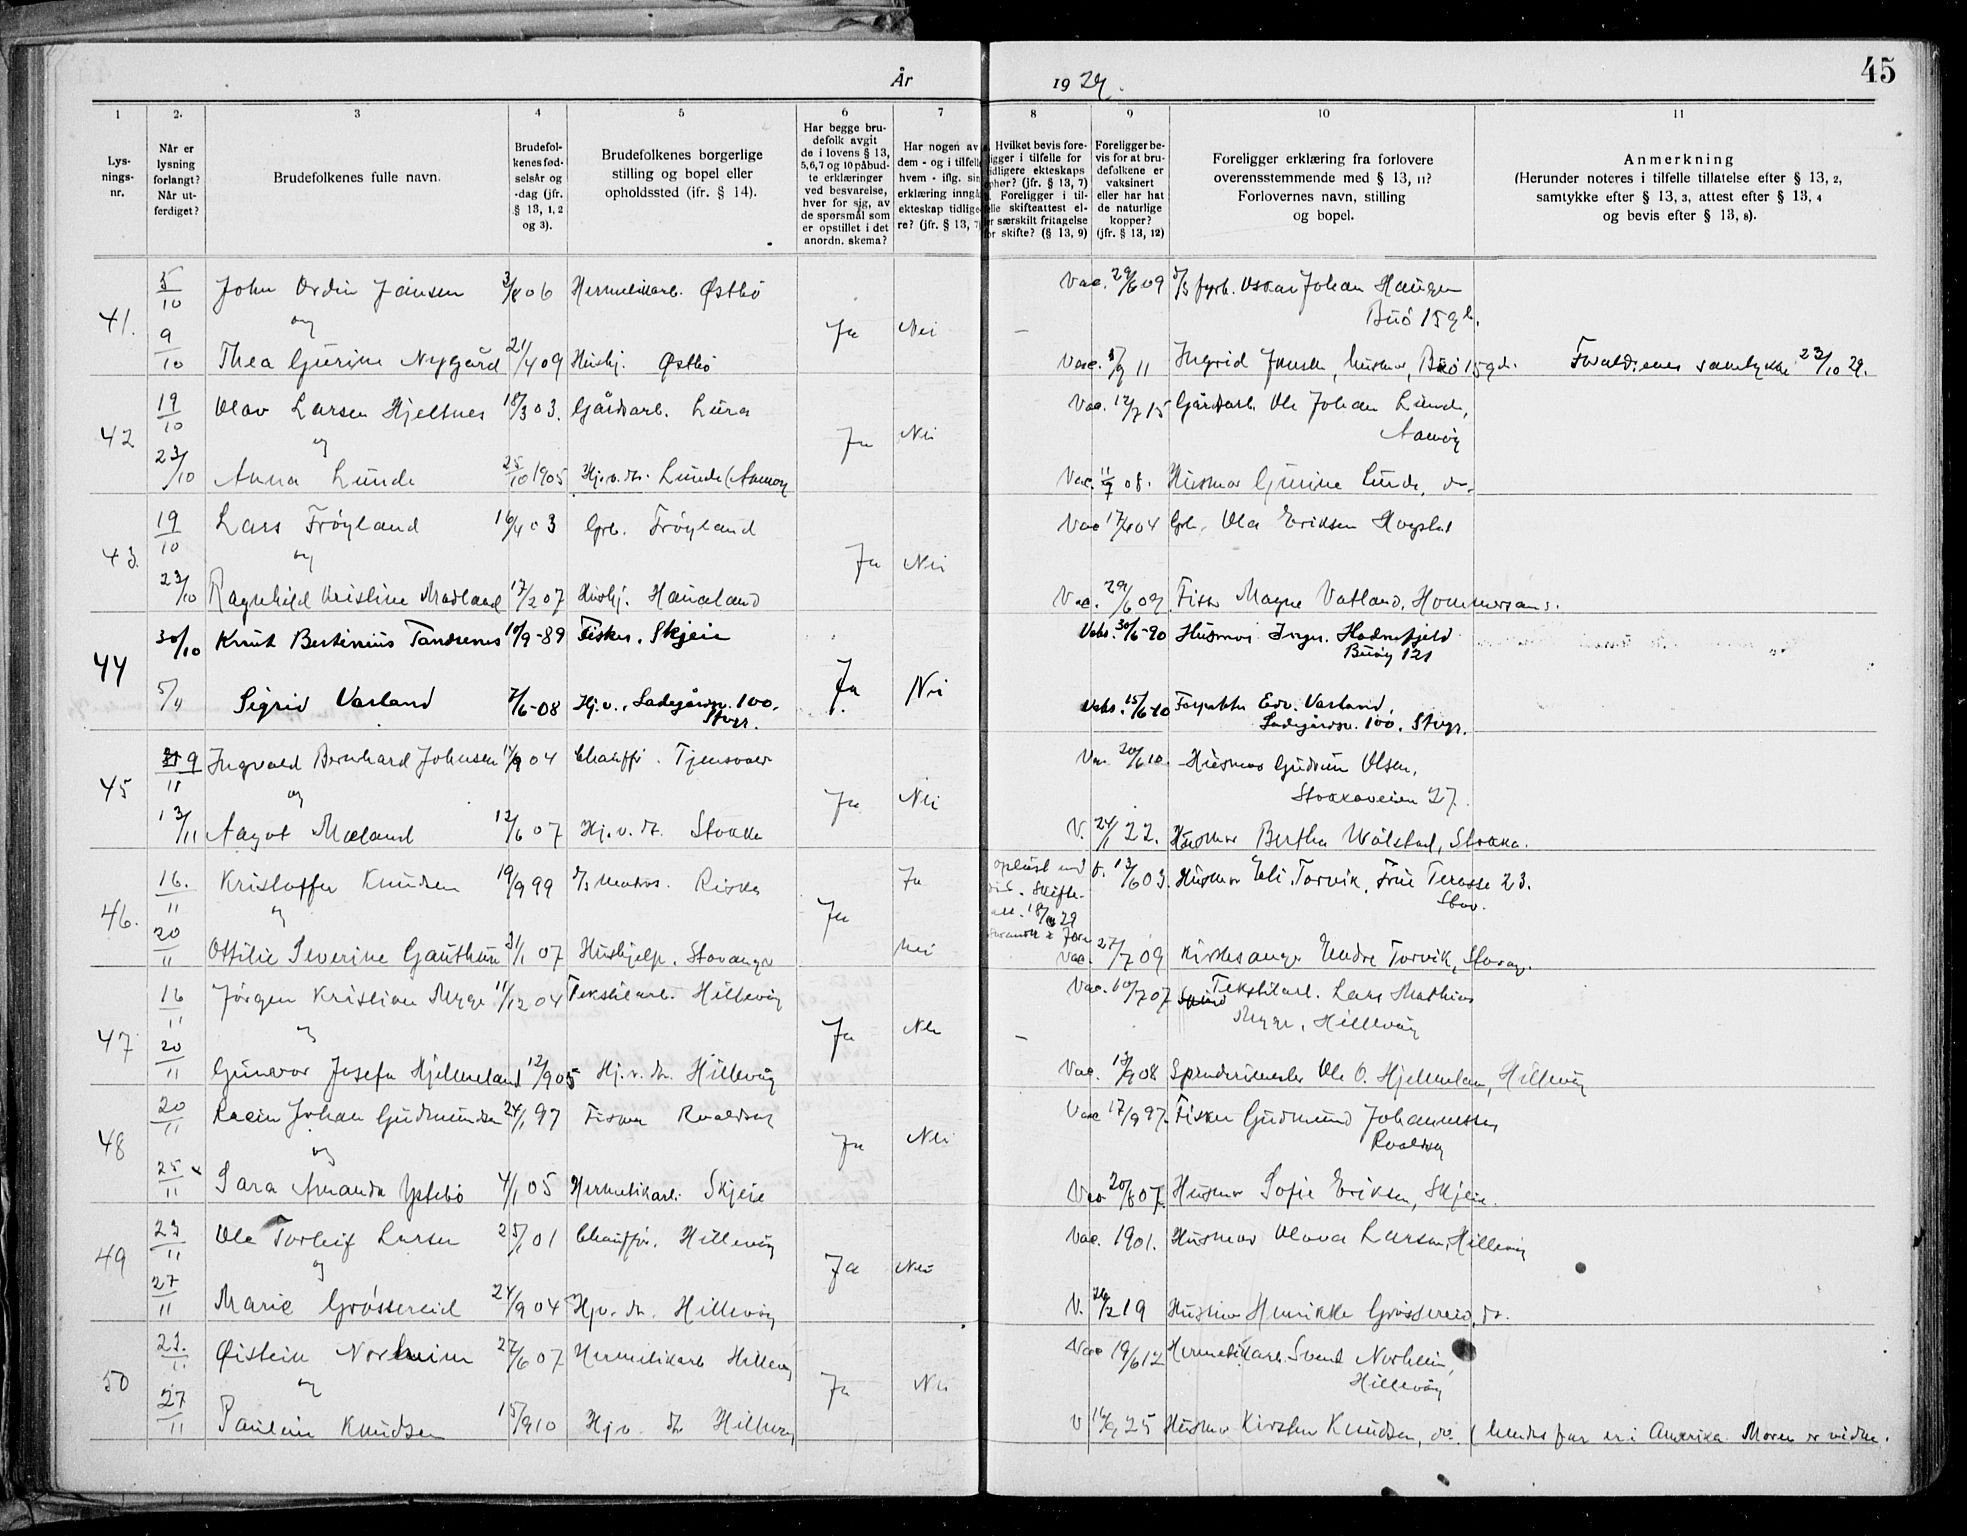 År 1929.
45
1
2.
3
4
5
6
7
8
9
10
11
Lys-
nings-
nr.
Når er
lysning
forlangt?
Når ut-
ferdiget?
Brudefolkenes fulle navn.
Brudefol-
kenes fød-
selsår og
-dag (jfr.
§ 13, 1, 2
og 3).
Brudefolkenes borgerlige
stilling og bopel eller
opholdssted (ifr. § 14).
Har begge bru-
defolk avgit
de i lovens § 13,
5,6,7 og 10 påbud-
te erklæringer
ved besvarelse,
hver for sig, av
de spørsmål som
er opstillet i det
anordn. skema?
Har nogen av
dem - og i tilfelle
hvem - iflg. sin
erklæring inngå
ekteskap tidlige-
re? (jfr. § 13, 7
Hvilket bevis fore-
ligger i tilfelle for
tidligere ekteskaps
ophør? (jfr. § 13, 7)
Foreligger i til-
felle skifteattest el-
er særskilt fritagelse
for skifte? (§ 13, 9)
Foreligger be-
vis for at bru-
defolkene er
vaksinert
eller har hat
de naturlige
kopper?
(jfr. § 13, 12)
Foreligger erklæring fra forlovere
overensstemmende med § 13, 11?
Forlovernes navn, stilling
og bopel.
Anmerkning
(Herunder noteres i tilfelle tillatelse efter § 13, 2,
samtykke efter § 13, 3, attest efter § 13, 4
og bevis efter § 13, 8).
5/10 John Ordin Jansen 3/8 06 Hermetikarb. Østbø Vac. 29/6 09 fyrb. Oscar Johan Haugen
41. og Ja Nei — Buø 159 b.
9/10 Thea Gurine Nygård 21/4 09 Hushj. Østbø Vac. 5/9 11 Ingrid Jansen, husmor, Buø 159 d. Foreldrenes samtykke 23/10 29.
19/10 Olav Larsen Hjeltnes 18/3 03. Gårdsarb. Lura Vac. 12/7 15 Gårdsarb. Ole Johan Lunde,
42 og Ja Nei Aamøy
23/10 Anna Lunde 25/10 1905 Hj.v.m. Lunde (Aamøy Vac. 11/9 08. Husmor Gurine Lunde, do.
19/10 Lars Frøyland 16/4 03 Grb. Frøyland Vac 17/6 04 Grb. Ola Eriksen Hogstad
43. og Ja Nei
23/10 Ragnhild Kristine Madland 17/2 07 Hushj. Hanaland Vac. 29/6 09. Fisk. Magne Vatland, Hommersand.
30/10 Knut Bertinius Tandrenes 10/9-89 Fisker. Skjeie Vaks. 30/6-90 Husmor Inger Hodnefjeld
44 Buøy 121
5/11 Sigrid Varland 7/6-08 Hj.v., Ladegårdsv. 100. Ja. Nei Vaks. 15/6-10 Edv. Varland,
Stvgr. Ladegårdsv. 100. Stvgr.
9/11 Ingvald Bernhard Johnsen 17/9 04 Chauffør. Tjensvoll Vac. 20/6 10. Husmor Gudrun Olsen,
45 og Ja Nei Stokkaveien 27.
13/11 Aagot Mæland 12/6 07 Hj.v.m. Stokka V. 24/1 22. Husmor Bertha Wølstad, Stokka.
16./11 Kristoffer Knudsen 19/9 99 Matros. Riska Ja 13/6 03. Husmor Eli Torvik, Frue Terasse 23.
46. og Ja Skifte- Stav.
20/11 Ottilie Severine Gauthun 31/1 07 Hushjelp. Stavanger Nei Vac. 27/7 09 Kirkesanger Endre Torvik, Stavang.
16/11 Jørgen Kristian Mygge 11/12 04 Tekstilarb. Hillevåg Vac. 10/7 07 Tekstilarb. Lars Mathias
47 og Ja Nei — Mygge, Hillevåg
20/11 Gunvor Josefa Hjelmeland 12/9 05 Hj.v.m. Hillevåg Vac. 13/9 08 Ole O. Hjelmeland, Hillevåg
20/11 Rasin Johan Gudmundsen 24/1 97 Fisker Roaldsøy Vac 17/9 97. Fisker Gudmund Johannessen,
48 og Ja Nei Roaldsøy
25/11 Sara Amanda Ystebø 4/1 05 Hermetikarb. Skjeie Vac 20/8 07. Husmor Sofie Eriksen, Skjeie.
23/11 Ole Torleif Larsen 25/1 01 Chauffør. Hillevåg Vac. 1901. Husmor Olava Larsen, Hillevåg
49 og Ja Nei
27/11 Marie Grøssereid 24/9 04 Hj.v.m. Hillevåg V. 26/2 19 Husmor Henrikke Grøssereid, do.
23./11 Øistein Norheim 27/6 07 Hermetikarb Hillevåg Vac 19/6 12 Hermetikarb. Svend Norheim,
50 og Ja Nei Hillevåg
27/11 Paulin Knudsen 15/9 10 Hj.v.m. Hillevåg V 16/9 25 Husmor Kirsten Knudsen, do. (hendes far er i Amerika. Moren er vidne.